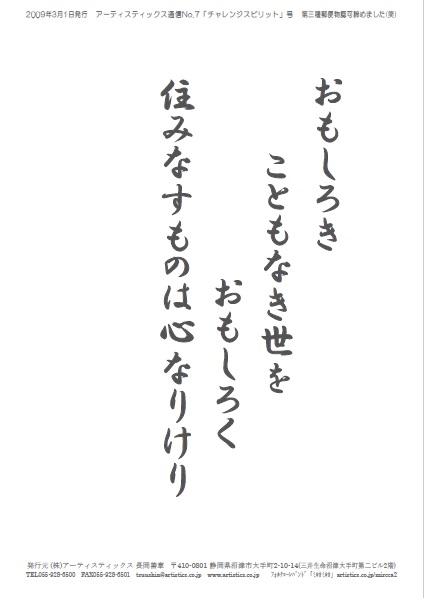 2009年3月1日発行　アーティスティックス通信No.7「チャレンジスピリット」号　第三種郵便物認可諦めました(笑)
おもしろき
こともなき世を
おもしろく
住みなすものは心なりけり
発行元 (株)アーティスティックス 長岡善章　〒410-0801 静岡県沼津市大手町2-10-14(三井生命沼津大手町第二ビル2階)
TEL055-928-6500　FAX055-928-6501　tsuushin@artistics.co.jp　www.artistics.co.jp　artistics.co.jp/miccca2